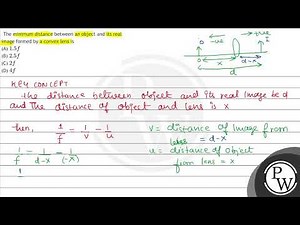 The minimum distance between an object and its real
image formed by a convex lens is
(A) 1.5f
(B) 2.5f
(C) 2f
(D) 4f
-ve +ve
O
x d-x
d
KEY CONCEPT
The distance between object and its real Image be d
and the distance of object and lens is x
then, 1/f = 1/v - 1/u
v = distance of Image from
lens = d-x
1/f = 1/d-x - 1/(-x)
u = distance of object
from lens = x
1
PW